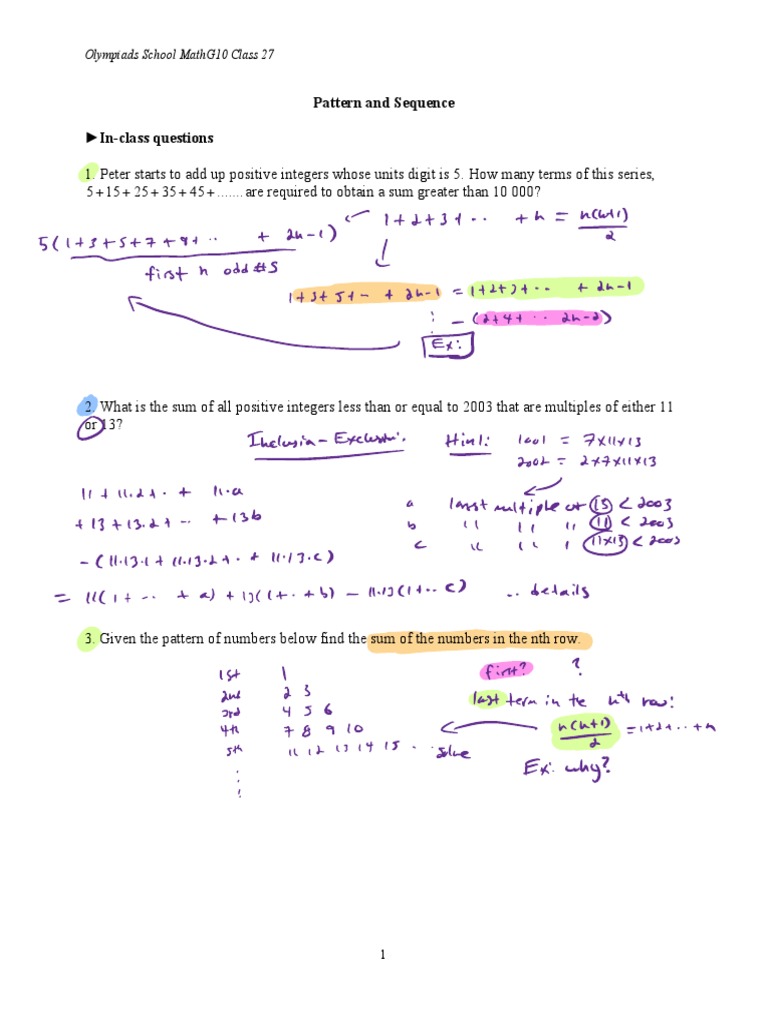 Olympiads School MathG10 Class 27
Pattern and Sequence
►In-class questions
1. Peter starts to add up positive integers whose units digit is 5. How many terms of this series,
5+15+25+35+45+.......are required to obtain a sum greater than 10 000?
1+2+3+.. +n = n(n+1)/2
5(1+3+5+7+9+.. + 2n-1)
first n odd #s
1+3+5+- + 2n-1 = 1+2+3+.. + 2n-1
- (2+4+.. 2n-2)
Ex:
2. What is the sum of all positive integers less than or equal to 2003 that are multiples of either 11
or 13?
Inclusia-Exclusi. Hint: 1001 = 7x11x13
2002 = 2x7x11x13
11+11.2+. + 11.a
a last multiple of 13 < 2003
+13+13.2+ -. +13b
b " " " 11 < 2003
-(11.13.1+11.13.2+. + 11.13.c)
c " " " 11x13 < 2003
= 11(1+-.. +a)+13(1+. +b) - 11.13(1+.. c) .. details
3. Given the pattern of numbers below find the sum of the numbers in the nth row.
1st 1 first? ?
2nd 2 3 last term in the nth row:
3rd 4 5 6
4th 7 8 9 10 n(n+1)/2 = 1+2+..+n
5th 11 12 13 14 15 . . solve
Ex: why?
1